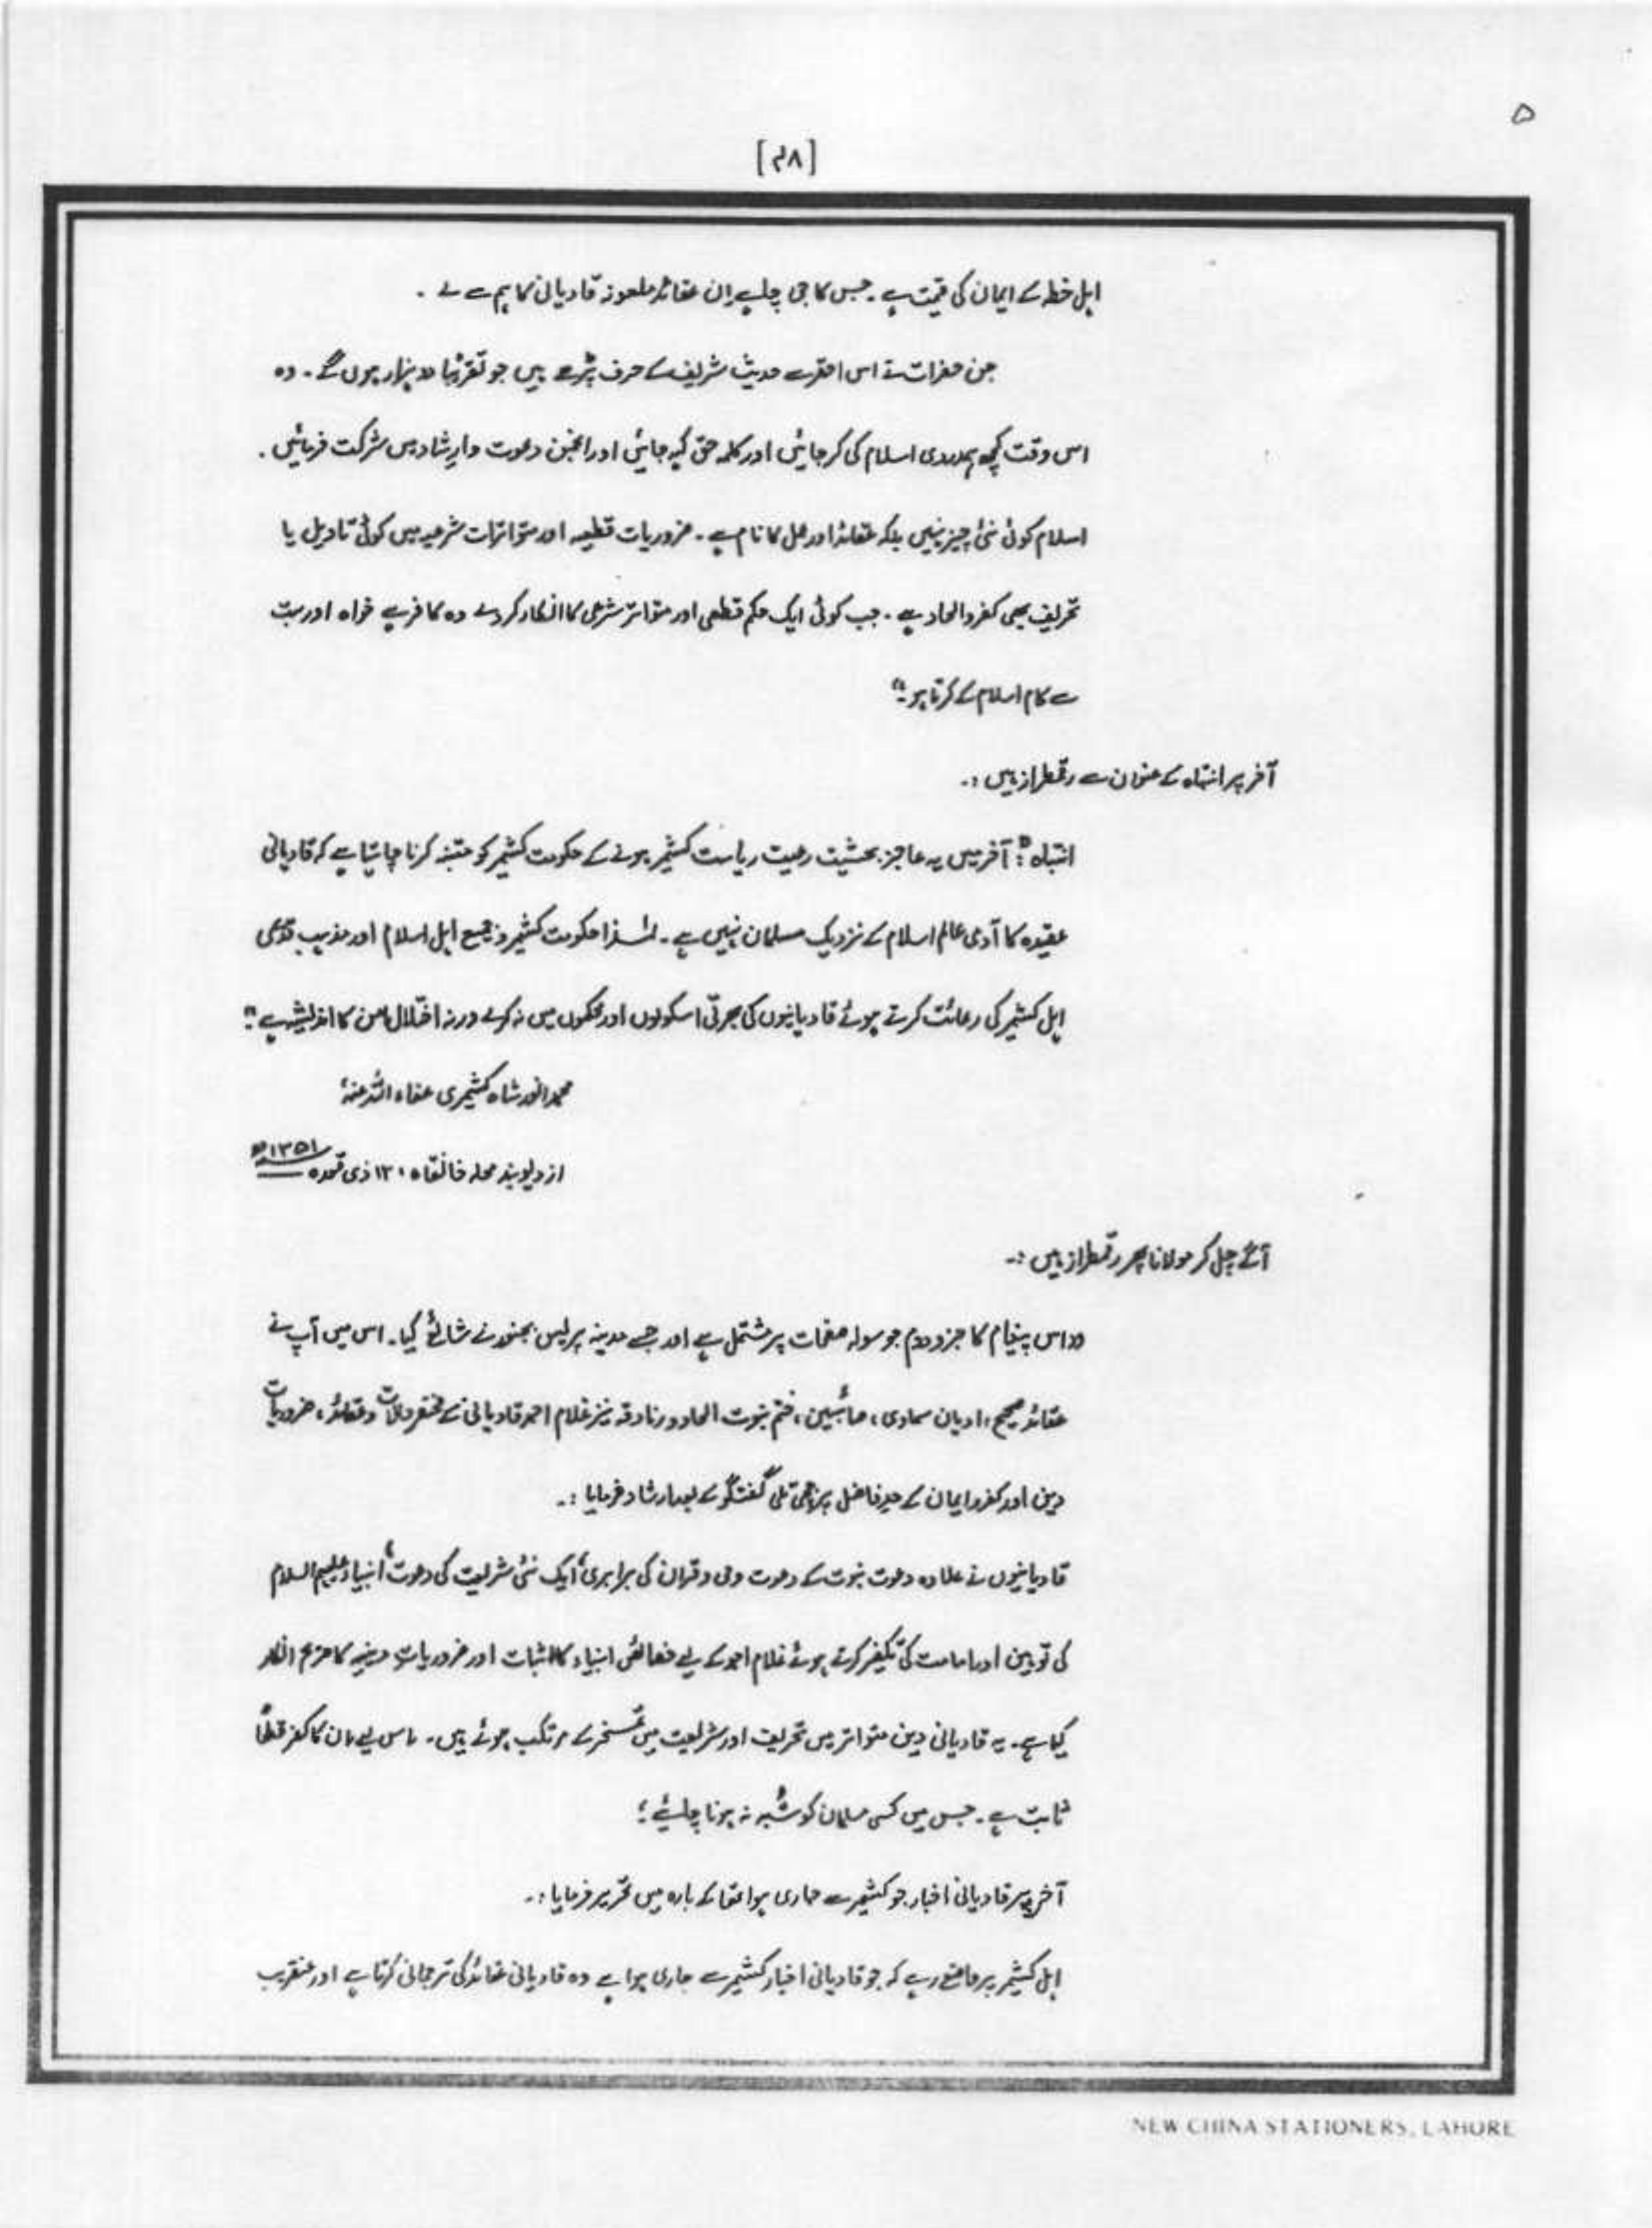 ۵
[۴۸]
اہل خطہ کے ایمان کی قیمت ہے۔ جس کا جی چاہے ان عقائد ملعونہ قادیانی کا ہم سے لے ۔
جن حضرات نے اس احقر سے حدیث شریف کے حرف پڑھے ہیں جو تقریبًا دو ہزار ہوں گے ۔ وہ
اس وقت کچھ ہمدردی اسلام کی کر جائیں اور کلمہ حق کہہ جائیں اور انجمن دعوت و ارشاد میں شرکت فرمائیں ۔
اسلام کوئی نئی چیز نہیں بلکہ عقائد اور عمل کا نام ہے ۔ ضروریات قطعیہ اور متواترات شرعیہ میں کوئی تاویل یا
تحریف بھی کفر و الحاد ہے ۔ جب کوئی ایک حکم قطعی اور متواتر شرعی کا انکار کر دے وہ کافر ہے خواہ اور بہت
سے کام اسلام کے کرتا ہو ۔"
آخر پر انتباہ کے عنوان سے رقمطراز ہیں :۔
انتباہ : "آخر میں یہ عاجز بحثیت رعیت ریاست کشمیر ہونے کے حکومت کشمیر کو متنبہ کرنا چاہتا ہے کہ قادیانی
عقیدہ کا آدمی عالم اسلام کے نزدیک مسلمان نہیں ہے ۔ لہٰذا حکومت کشمیر و جمیع اہل اسلام اور مذہب قدیمی
اہل کشمیر کی رعائت کرتے ہوئے قادیانیوں کی بھرتی اسکولوں اور محکموں میں نہ کرے ورنہ اختلال امن کا اندیشہ ہے ۔"
محمد انور شاہ کشمیری عفاء اللہ عنہٗ
از دیوبند محلہ خانقاہ ۱۳۰ ذی قعدہ ۱۳۵۱ھ
آگے چل کر مولانا پھر رقمطراز ہیں :۔
" اس پیغام کا جزو دوم جو سولہ صفحات پر مشتمل ہے اور جسے مدینہ پریس بجنور نے شائع کیا ۔ اس میں آپ نے
عقائد صحیح ، ادیان سماوی ، صائبین ، ختم نبوت الحاد و زنادقہ نیز غلام احمد قادیانی کے مختصر حالات و عقائد ، ضروریات
دین اور کفر و ایمان کے حد فاصل پر نپی تلی گفتگو کے بعد ارشاد فرمایا :۔
قادیانیوں نے علاوہ دعوت نبوت کے دعوت وحی و قرآن کی برابری ، ایک نئی شریعت کی دعوت ، انبیاء علیہم السلام
کی توہین اور امامت کی تکفیر کرتے ہوئے غلام احمد کے لیے خصائص انبیاء کا اثبات اور ضروریات دینیہ کا صریح انکار
کیا ہے ۔ یہ قادیانی دین متواتر میں تحریف اور شریعت میں تمسخر کے مرتکب ہوئے ہیں ۔ اس لیے ان کا کفر قطعاً
ثابت ہے ۔ جس میں کسی مسلمان کو شبہ نہ ہونا چاہئے ؛
آخر پر قادیانی اخبار جو کشمیر سے جاری ہوا تھا کے بارہ میں تحریر فرمایا :۔
اہل کشمیر پر واضع رہے کہ جو قادیانی اخبار کشمیر سے جاری ہوا ہے وہ قادیانی عقائد کی ترجمانی کرتا ہے اور عنقریب
NEW CHINA STATIONERS, LAHORE